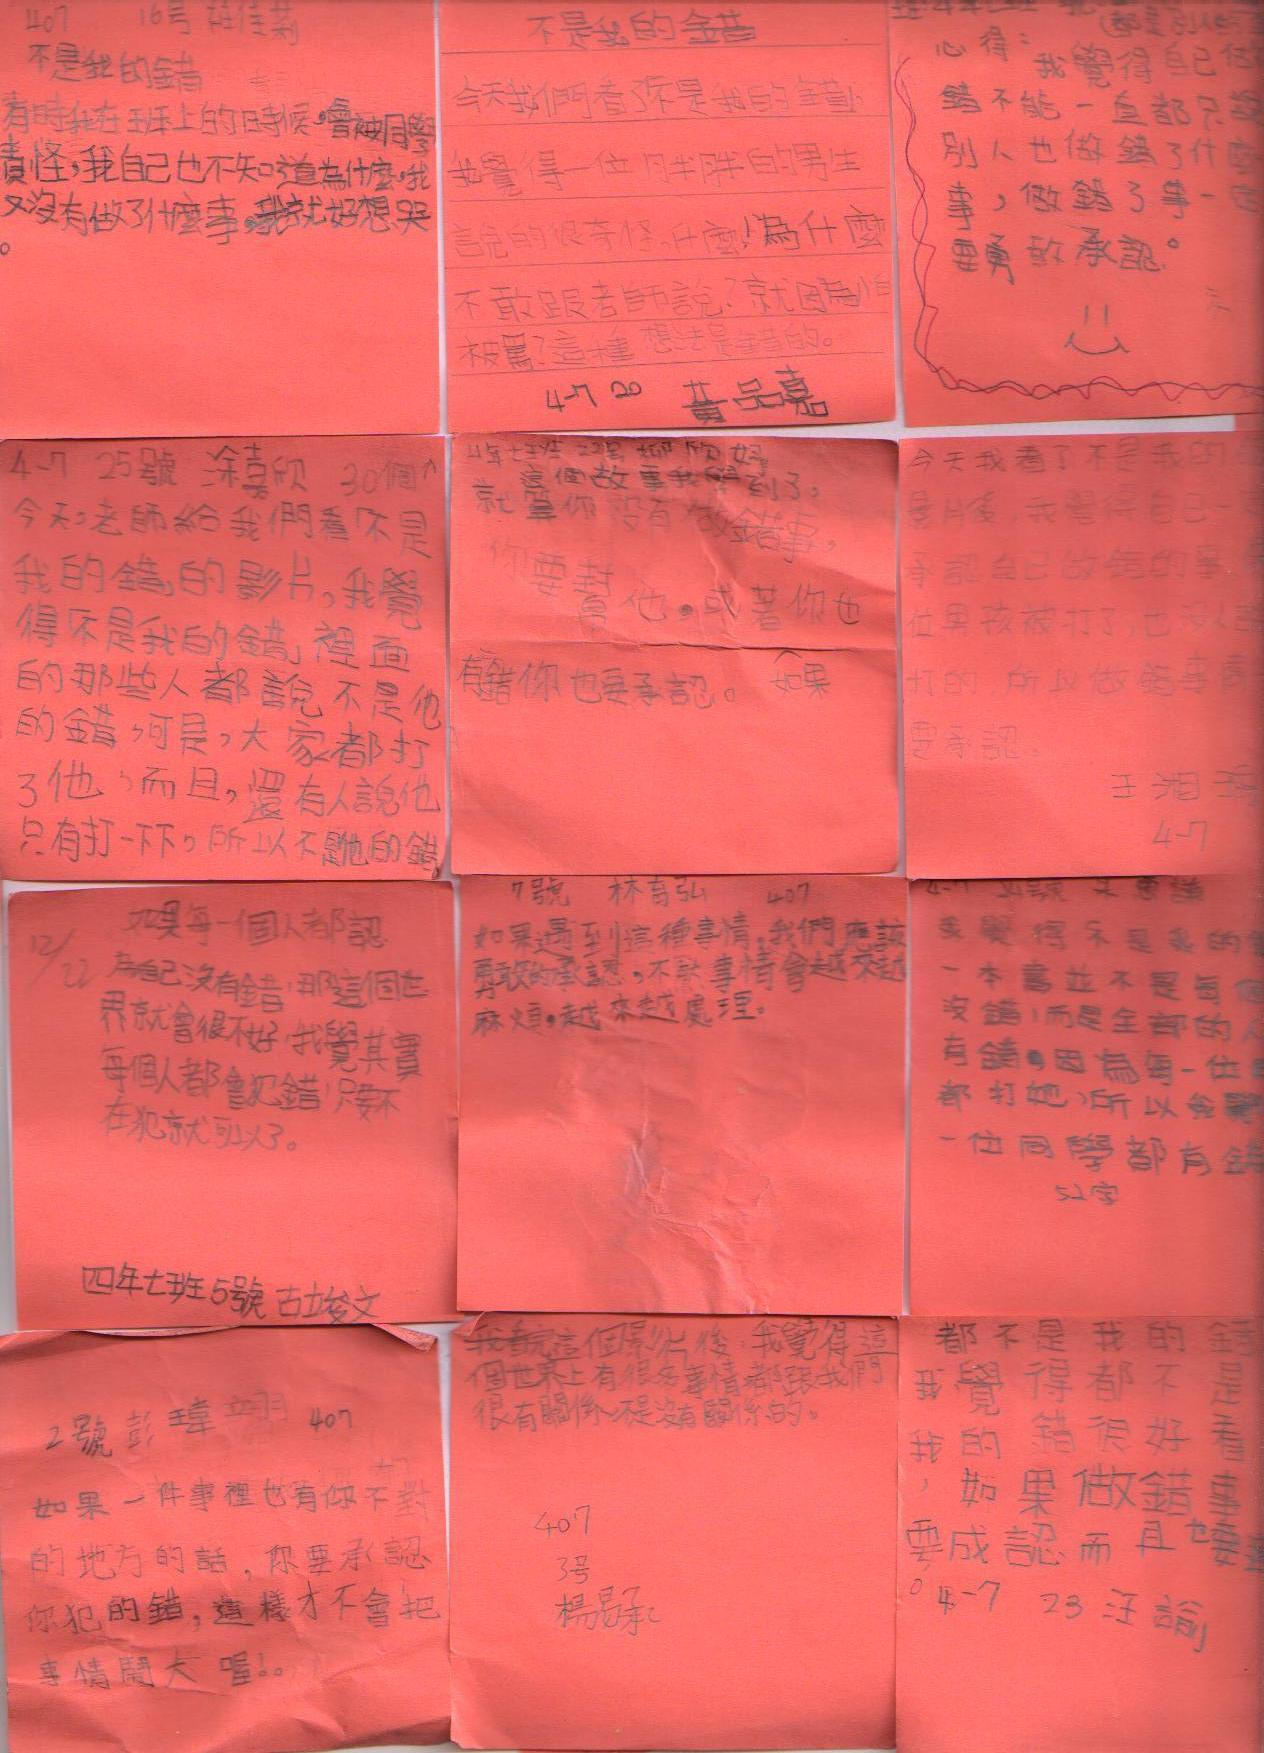 407 16号
不是我的錯
有時我在班上的時候,會被同學
責怪,我自己也不知道為什麼,我
又沒有做了什麼事,我就好想哭
。
不是我的錯
今天我們看了不是我的錯,
我覺得一位胖胖的男生
說的很奇怪,什麼!為什麼
不敢跟老師說?就因為怕
被罵?這種想法是錯的。
4-7 20 黃品嘉
心得:我覺得自己做
錯不能一直都只說
別人也做錯了什麼
事,做錯了事一定
要勇敢承認。
4-7 25號 涂嘉欣 30個
今天,老師給我們看「不是
我的錯」的影片,我覺
得「不是我的錯」裡面
的那些人都說不是他
的錯,可是,大家都打
了他,而且,還有人說他
只有打一下下,所以不是他的錯
四年七班 22號 柳欣妤
這個故事我學到了。
就算你沒有做錯事,
你要幫
他。或著你也
有錯你也要承認。 如果
今天我看了不是我的
影片後,我覺得自己一
承認自己做錯的事
位男孩被打了,也沒人
打的 所以做錯事
要承認。
王湘
4-7
12/22
如果每一個人都認
為自己沒有錯,那這個世
界就會很不好,我覺其實
每個人都會犯錯,只要不
在犯就可以了。
四年七班5號 古竣文
7號 林育弘 407
如果遇到這種事情,我們應該
勇敢的承認,不然事情會越來越
麻煩,越來越處理。
4-7
我覺得不是我的
一本書並不是每個
沒錯,而是全部的人
有錯,因為每一位
都打她,所以我覺
一位同學都有錯
52字
2號 彭瑋翊 407
如果一件事裡也有你不對
的地方的話,你要承認
你犯的錯,這樣才不會把
事情鬧大喔!。
我看完這個影片後,我覺得這
個世界上有很多事情都跟我們
很有關係,不是沒有關係的。
407
3号
楊易承
都不是我的錯
我覺得都不是
我的錯很好看
,如果做錯事
要成認而且也要
。4-7 23 汪諭